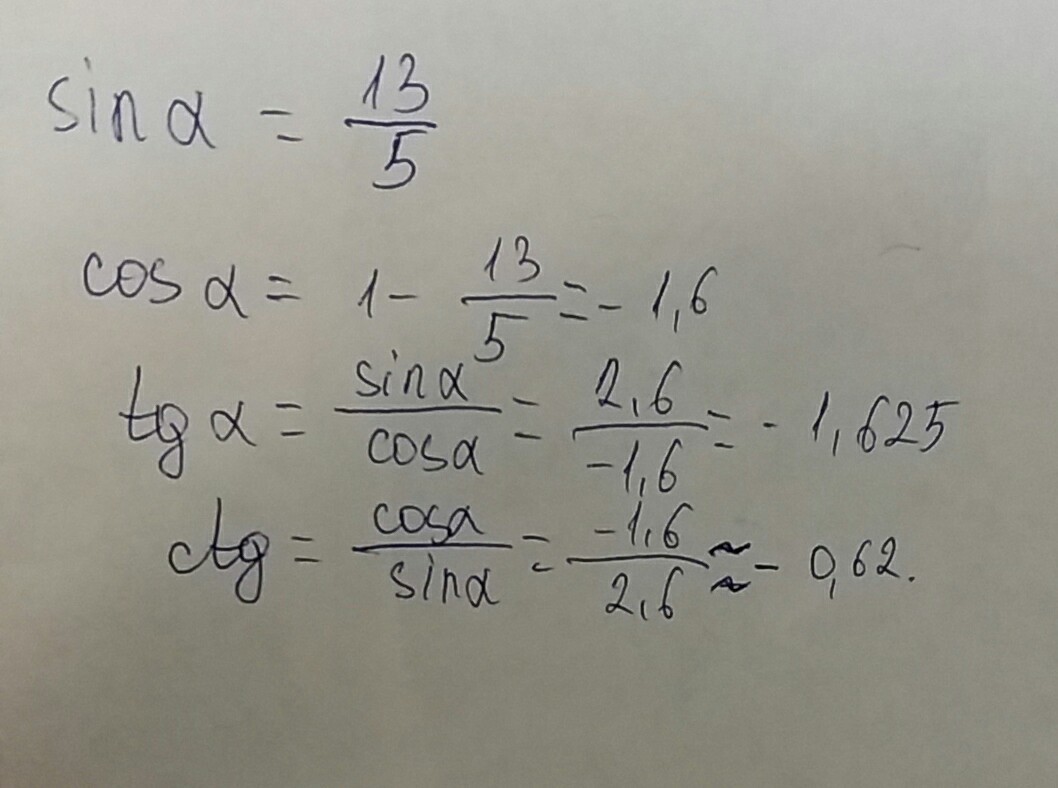 sin α = 13/5
cos α = 1 - 13/5 = - 1,6
tg α = sin α/cos α = 2,6/-1,6 = - 1,625
ctg = cos α/sin α = -1,6/2,6 ≈ - 0,62.